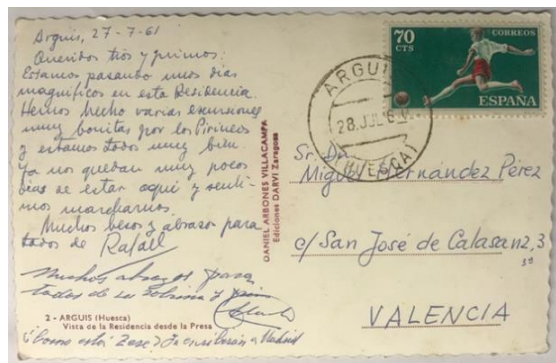 Arguis, 27-7-61
Queridos tíos y primos:
Estamos pasando unos días
magníficos en esta Residencia.
Hemos hecho varias excursiones
muy bonitas por los Pirineos
y estamos todos muy bien
Ya nos quedan muy pocos
días de estar aquí y senti-
mos marcharnos.
Muchos besos y abrazos para
todos de Rafael
Muchos abrazos para
todos de
2 - ARGUIS (Huesca)
Vista de la Residencia desde la Presa
DANIEL ARBONES VILLACAMPA
Ediciones DARVI Zaragoza
70
CTS
CORREOS
ESPAÑA
ARGUIS
28. JUL
(HUESCA)
Sr. Dn.
Miguel Hernandez Pérez
c/ San José de Calasanz, 3
3º
VALENCIA